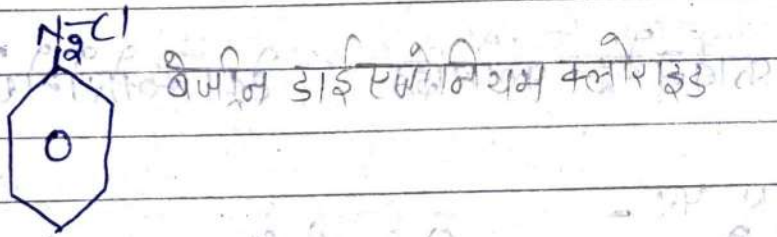 N2-Cl
बेंजीन डाईएजोनियम क्लोराइड